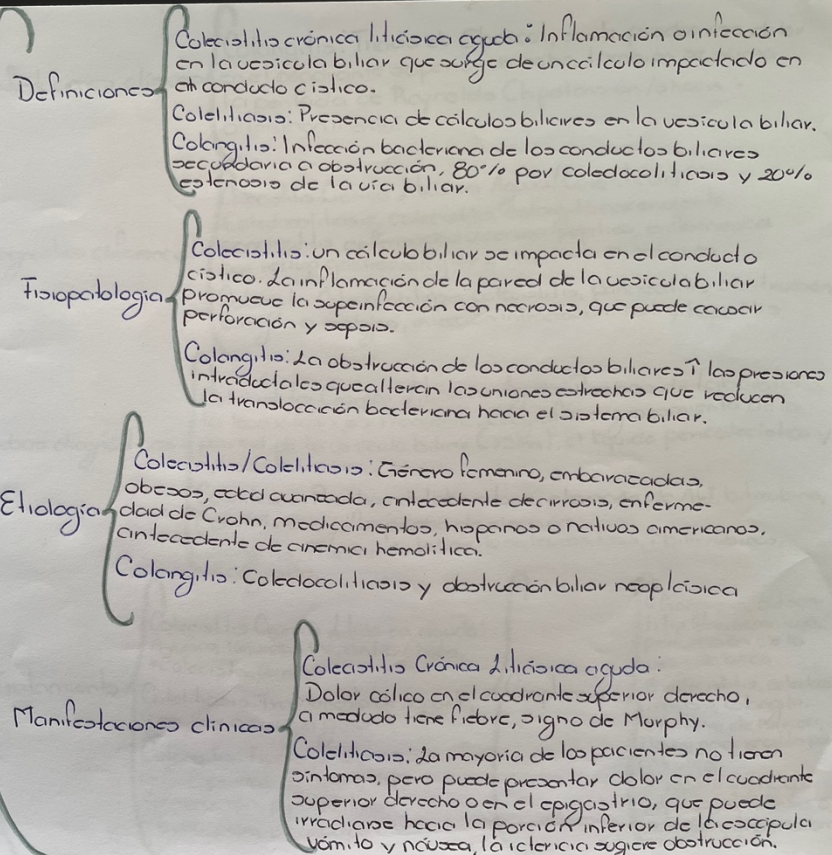 Definiciones
Colecistitis crónica litiásica aguda: Inflamación o infección
en la vesícula biliar que surge de un cálculo impactado en
el conducto cístico.
Colelitiasis: Presencia de cálculos biliares en la vesícula biliar.
Colangitis: Infección bacteriana de los conductos biliares
secundaria a obstrucción, 80% por coledocolitiasis y 20%
estenosis de la vía biliar.
Fisiopatología
Colecistitis: un cálculo biliar se impacta en el conducto
cístico. La inflamación de la pared de la vesícula biliar
promueve la supeinfección con necrosis, que puede causar
perforación y sepsis.
Colangitis: La obstrucción de los conductos biliares ↑ las presiones
intraductales que alteran las uniones estrechas que reducen
la translocación bacteriana hacia el sistema biliar.
Etiología
Colecistitis/Colelitiasis: Género femenino, embarazadas,
obesos, edad avanzada, antecedente de cirrosis, enferme-
dad de Crohn, medicamentos, hispanos o nativos americanos,
antecedente de anemia hemolítica.
Colangitis: Coledocolitiasis y obstrucción biliar neoplásica
Manifestaciones clínicas
Colecistitis Crónica Litiásica aguda:
Dolor cólico en el cuadrante superior derecho,
a medudo tiene fiebre, signo de Murphy.
Colelitiasis: La mayoría de los pacientes no tienen
síntomas, pero puede presentar dolor en el cuadrante
superior derecho o en el epigastrio, que puede
irradiarse hacia la porción inferior de la escápula
vómito y náusea, la ictericia sugiere obstrucción.